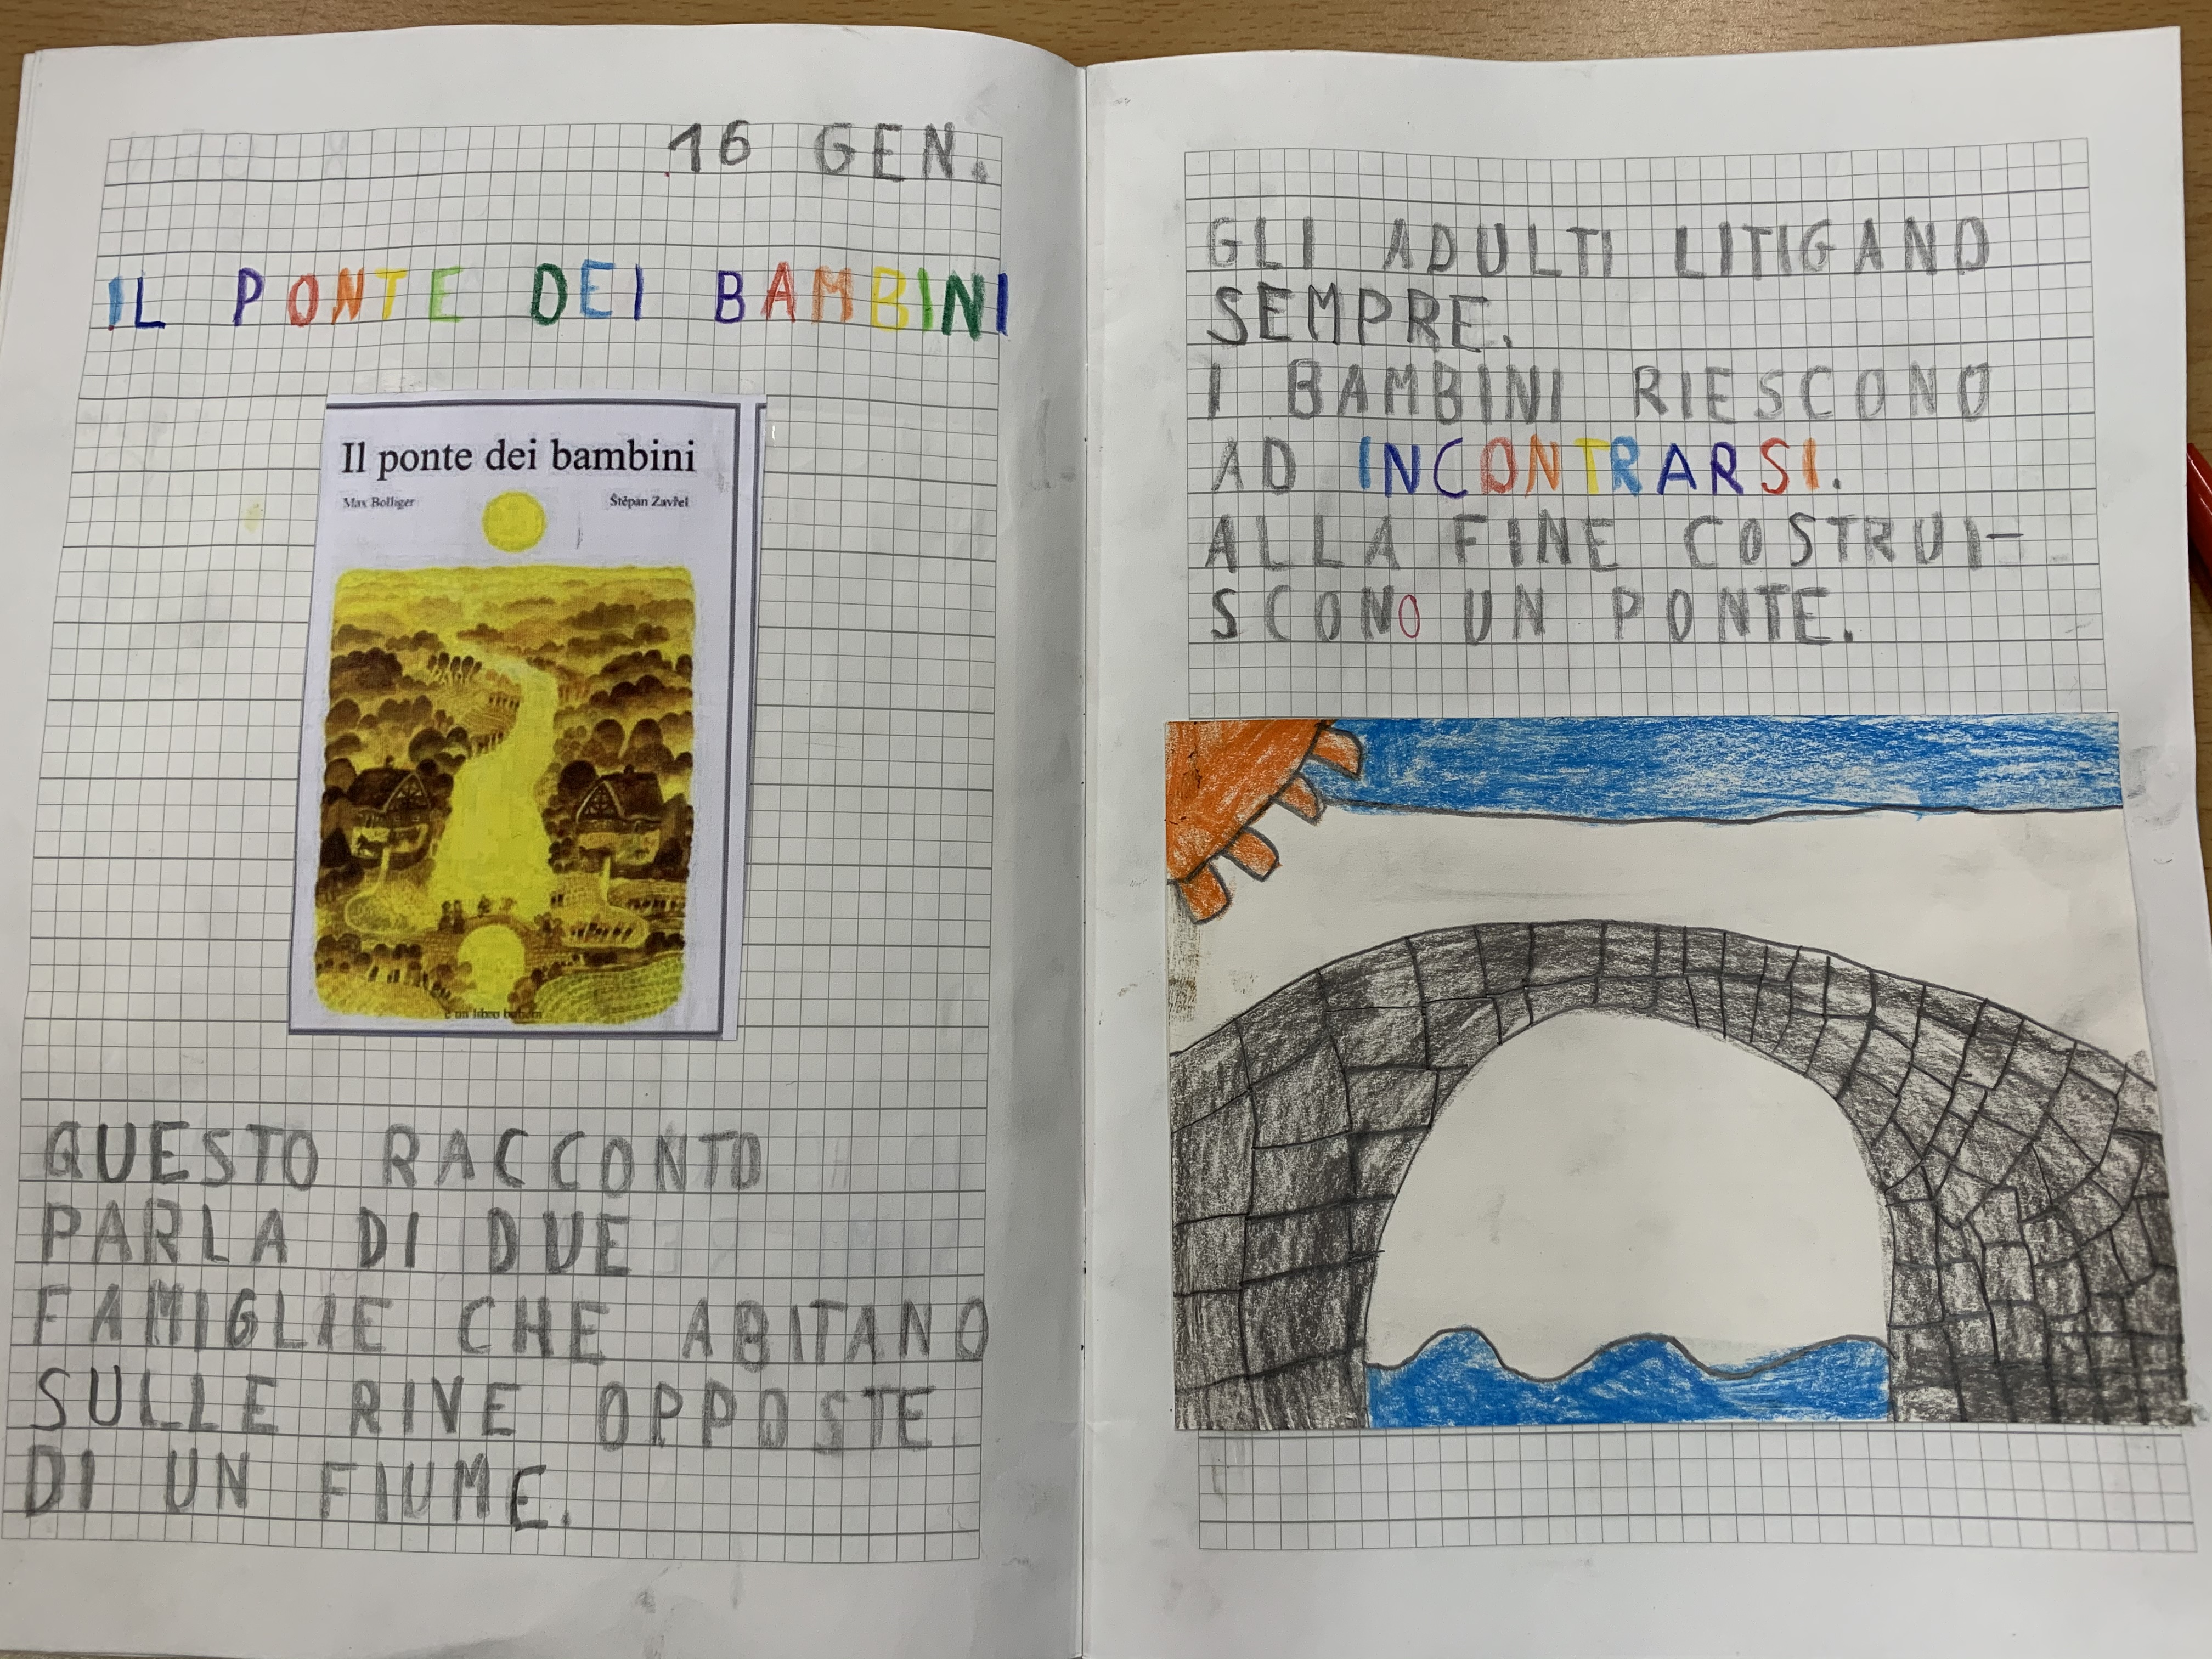 16 GEN.
IL PONTE DEI BAMBINI
Il ponte dei bambini
Max Bolliger
Štěpán Zavřel
è un libro bohem
QUESTO RACCONTO
PARLA DI DUE
FAMIGLIE CHE ABITANO
SULLE RIVE OPPOSTE
DI UN FIUME.
GLI ADULTI LITIGANO
SEMPRE.
I BAMBINI RIESCONO
AD INCONTRARSI.
ALLA FINE COSTRUI-
SCONO UN PONTE.